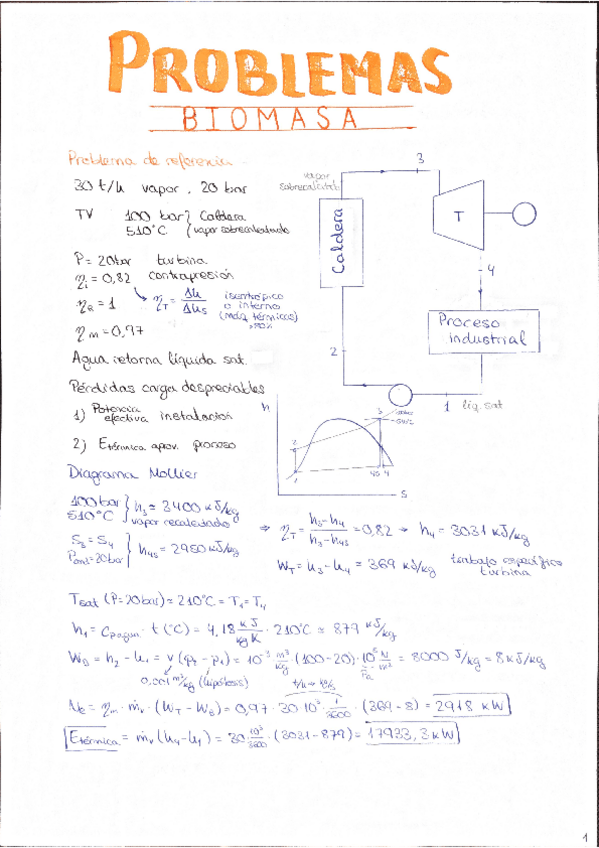 PROBLEMAS
BIOMASA
Problema de referencia
30 t/h vapor . 20 bar
TV 100 bar } Caldera
510°C } vapor sobrecalentado
P = 20 bar turbina
contrapresión
ηi = 0,82
→ ηT = Δh/Δhs isentrópico o interno (máq. térmicos)
ηe = 1
ηm = 0,97
Agua retorna líquida sat.
Pérdidas carga despreciables
1) Potencia efectiva instalación
2) Etérmica aprov. proceso
vapor
sobrecalentado
3
Caldera
T
4
Proceso
industrial
2
1 líq. sat
h
3
2
1
4s 4
S
Diagrama Mollier
100 bar } h3 ≈ 3400 kJ/kg
510°C } vapor recalentado
S3 = S4 } h4s = 2950 kJ/kg
⇒ ηT = (h3 - h4)/(h3 - h4s) = 0,82 → h4 = 3031 kJ/kg
WT = h3 - h4 = 369 kJ/kg trabajo específico turbina
Tsat (P=20bar) ≈ 210°C = T1 = T4
h1 = Cpagua · t (°C) = 4,18 kJ/kg K · 210°C ≈ 879 kJ/kg
WB = h2 - h1 = v (p2 - p1) = 10⁻³ m³/kg · (100-20) · 10⁵ N/m² = 8000 J/kg = 8 kJ/kg
0,001 m³/kg (hipótesis)
Pa
t/h → kg/s
Ne = ηm · ṁv · (WT - WB) = 0,97 · 30 · 10³ · 1/3600 · (369 - 8) = 2918 kW
Etérmica = ṁv (h4 - h1) = 30 · 10³/3600 · (3031 - 879) = 17933,3 kW
1